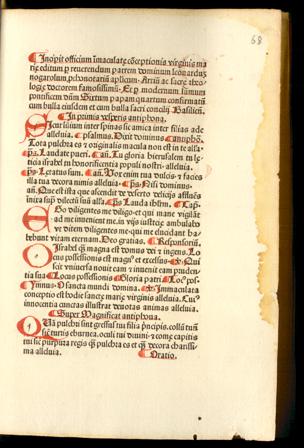 68
¶ Incipit officium īmaculate cōceptionis virginis ma
rie editum per reuerendum patrem dominum leonarduȝ
nogarolum prothonotariū aplicum. Artiū ac sacre theo
logie doctorem famosissimū. Et per modernum summū
pontificem dn̄m Sixtum papam quartum confirmatū
cum bulla eiusdem et cum bulla sacri concilij Basiliēn.
¶ In primis vesperis antiphona.
Sicut lilium inter spinas sic amica inter filias ade
alleluia. ¶ psalmus. Dixit dominus ¶ antiphō.
Tota pulchra es et originalis macula non est in te alla.
¶ ps. Laudate pueri. ¶ an. Tu gloria hierusalem tu le
ticia israhel tu honorificentia populi nostri alleluia.
¶ ps. Letatus sum. ¶ an. Vox enim tua dulcis et facies
illa tua decora nimis alleluia. ¶ ps. Nisi dominus
an. Que est ista que ascendit de deserto delicijs affluēs
innixa sup dilectū suū alla. ¶ ps. Lauda ihrlm. ¶ Cap.
Ego diligentes me diligo et qui mane vigilāt
ad me inuenient me. in vijs iusticie ambulabo
ve ditem diligentes me. qui me elucidant ha
bebunt vitam eternam. Deo gratias. ¶ Responsoriū.
O israhel q̄ magna est domus dei et ingens. Lo
cus possessionis est magn⁹ et excelsus. ¶ Qui
scit vniuersa nouit eam et inuenit eam pruden
tia sua ¶ Locus possessionis ¶ Gloria patri ¶ Loc⁹ pos.
¶ ymnus. O sancta mundi domina. ¶ Immaculata
conceptio est hodie sancte marie virginis alleluia. Cui⁹
innocentia cunctas illustrat deuotas animas alleluia.
¶ Super Magnificat antiphona.
Quā pulchri sunt gressus tui filia pricipis. collū tuū
sic turris eburnea. oculi tui diuini. et come capitis
tui sic purpura regis q̄ pulchra es et q̄ decora charissi
ma alleluia. ¶ Oratio.